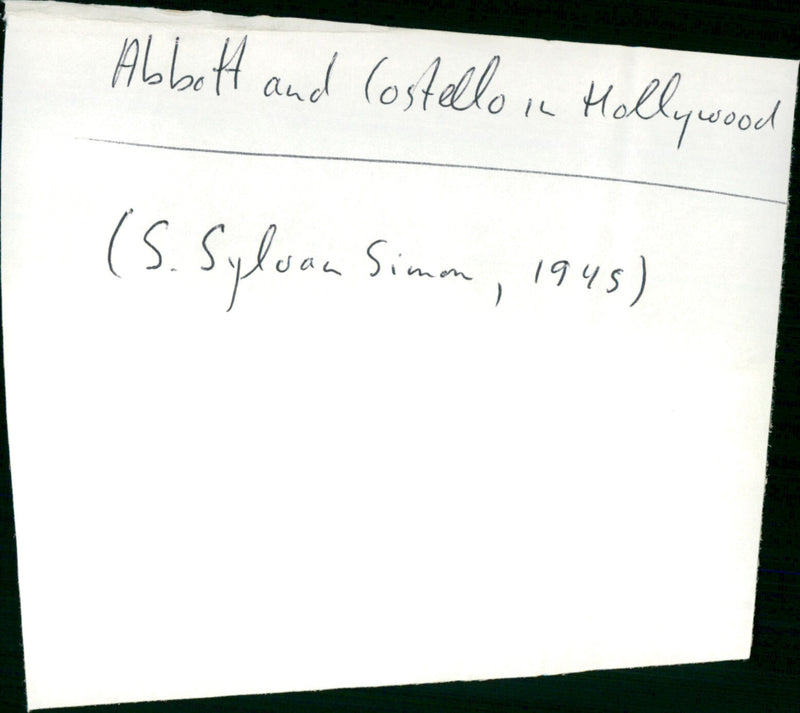 Abbott and Costello in Hollywood
(S. Sylvan Simon, 1945)